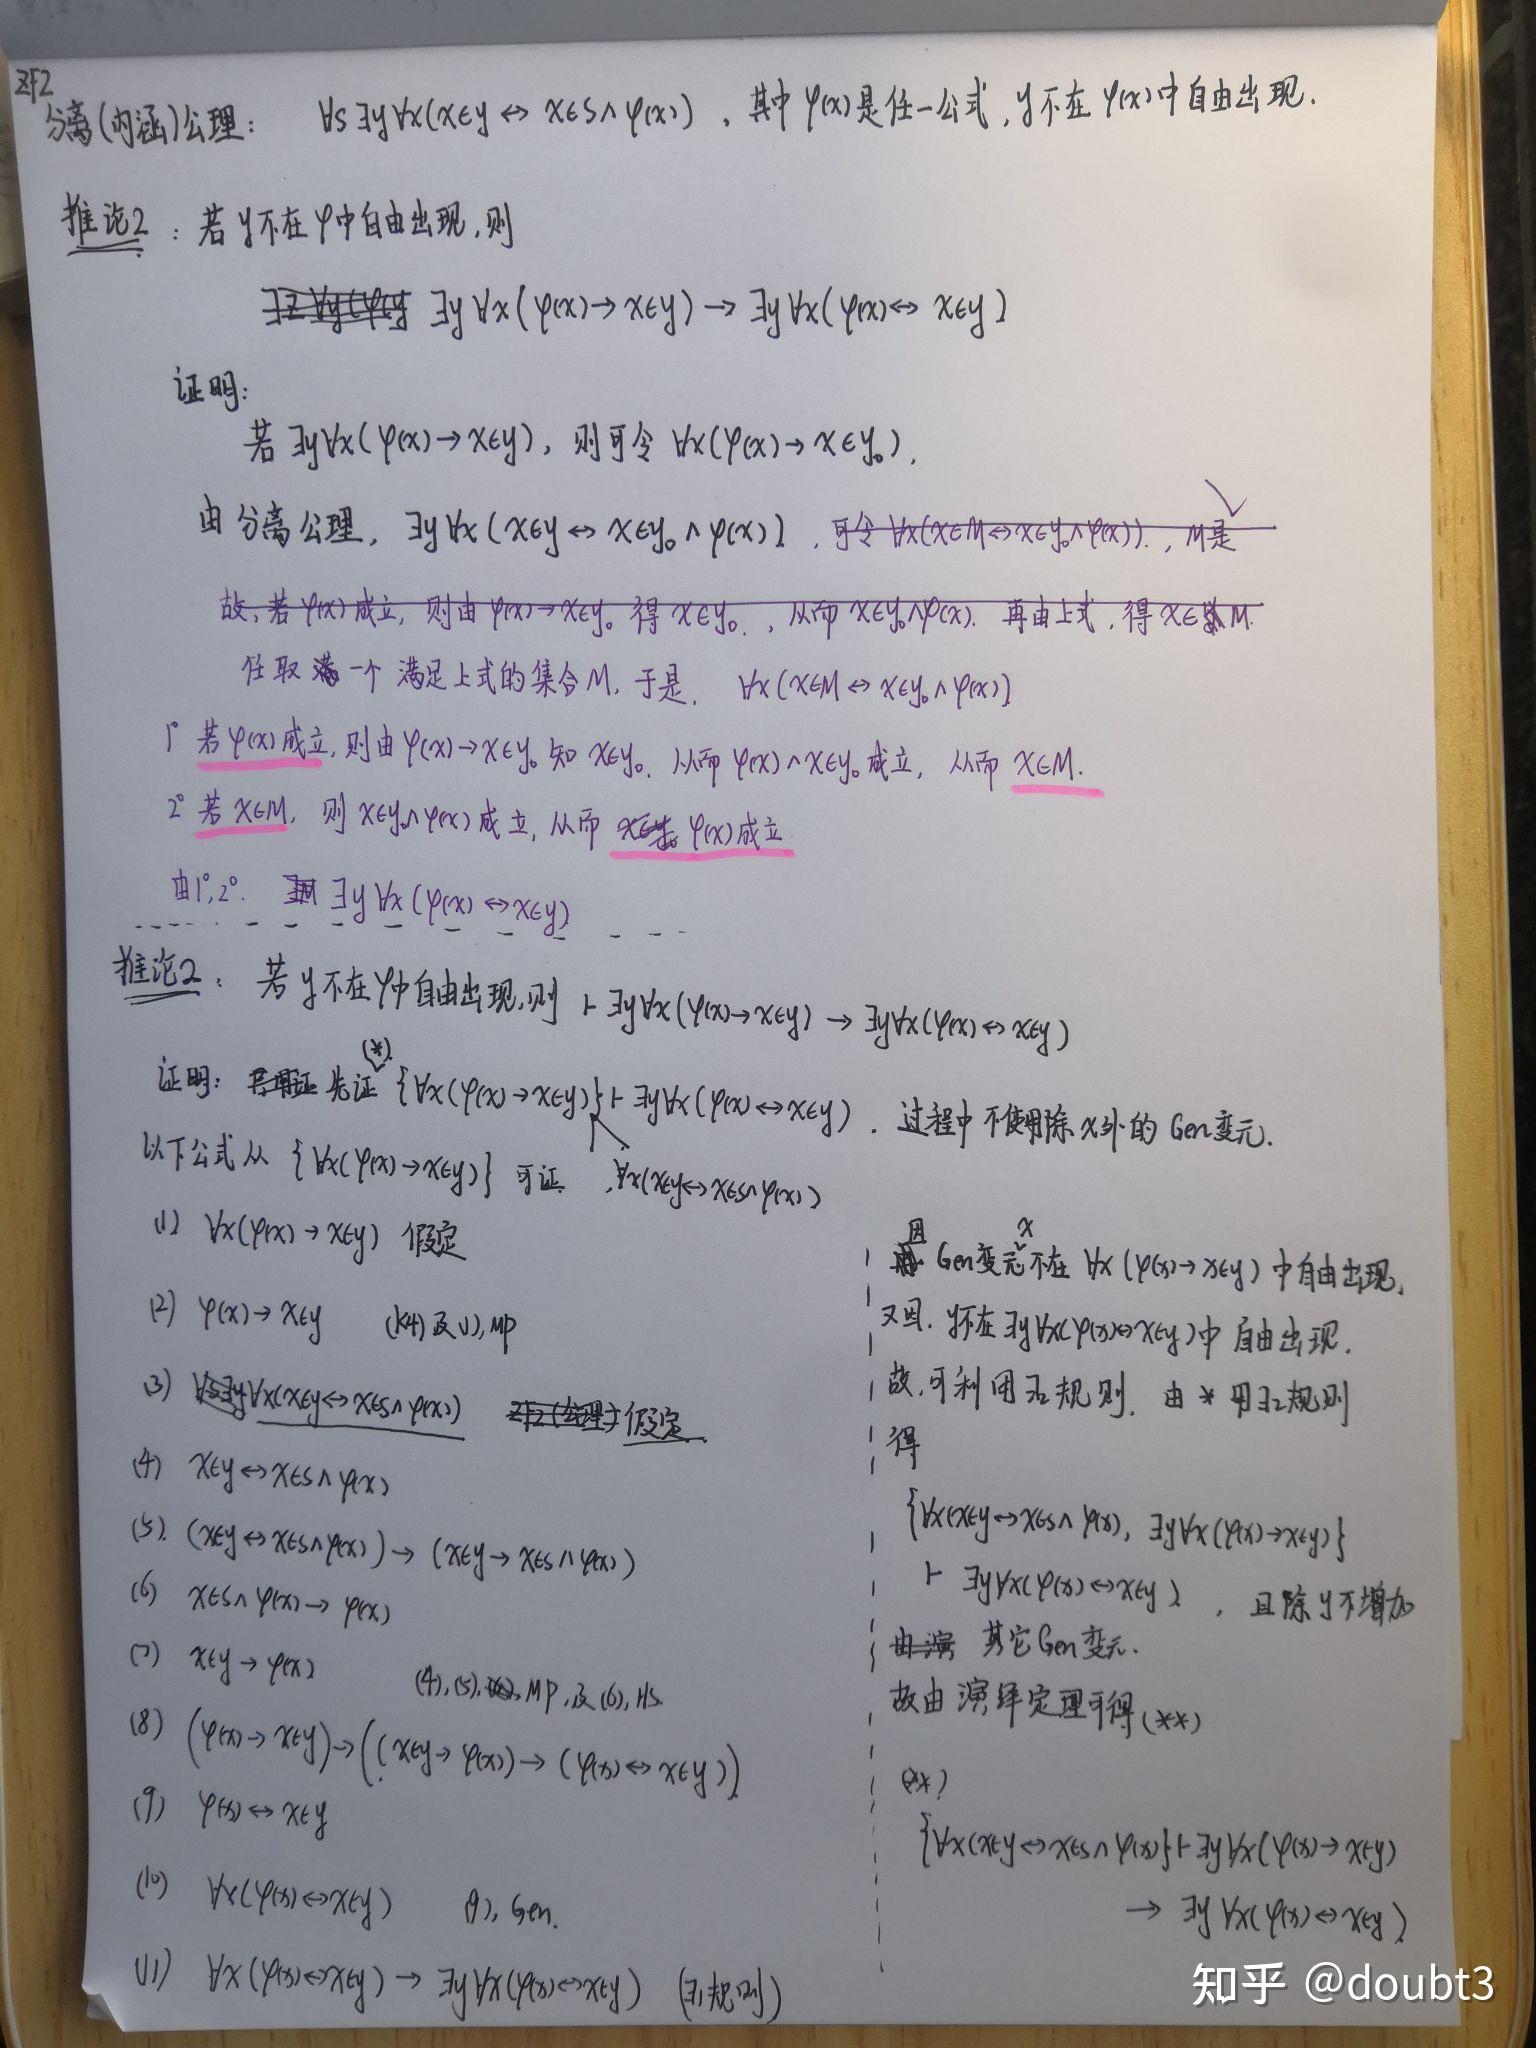 ZF2
分离(内涵)公理: ∀s∃y∀x(x∈y↔x∈s∧φ(x)),其中φ(x)是任一公式,y不在φ(x)中自由出现.
推论2:若y不在φ中自由出现,则
∃y∀x(φ(x)→x∈y)→∃y∀x(φ(x)↔x∈y)
证明:
若∃y∀x(φ(x)→x∈y),则可令∀x(φ(x)→x∈y₀).
由分离公理,∃y∀x(x∈y↔x∈y₀∧φ(x)).,可令∀x(x∈M↔x∈y₀∧φ(x)).,M是
故,若φ(x)成立,则由φ(x)→x∈y₀得x∈y₀.,从而x∈y₀∧φ(x).再由上式,得x∈M.
任取一个满足上式的集合M,于是.∀x(x∈M↔x∈y₀∧φ(x))
1°若φ(x)成立,则由φ(x)→x∈y₀知x∈y₀.从而φ(x)∧x∈y₀成立,从而x∈M.
2°若x∈M,则x∈y₀∧φ(x)成立,从而φ(x)成立
由1°,2°.∃y∀x(φ(x)↔x∈y)
推论2:若y不在φ中自由出现,则⊢∃y∀x(φ(x)→x∈y)→∃y∀x(φ(x)↔x∈y)
(*)
证明:先证{∀x(φ(x)→x∈y)}⊢∃y∀x(φ(x)↔x∈y).过程中不使用除x外的Gen变元.
以下公式从{∀x(φ(x)→x∈y)}可证 ,∀x(x∈y↔x∈s∧φ(x))
(1) ∀x(φ(x)→x∈y) 假定
(2) φ(x)→x∈y (K4)及(1),MP
(3) ∀s∃y∀x(x∈y↔x∈s∧φ(x)) ZF2(公理) 假定
(4) x∈y↔x∈s∧φ(x)
(5). (x∈y↔x∈s∧φ(x))→(x∈y→x∈s∧φ(x))
(6) x∈s∧φ(x)→φ(x)
(7) x∈y→φ(x) (4),(5),MP,及(6),HS
(8) (φ(x)→x∈y)→((x∈y→φ(x))→(φ(x)↔x∈y))
(9) φ(x)↔x∈y
(10) ∀x(φ(x)↔x∈y) (9),Gen.
(11) ∀x(φ(x)↔x∈y)→∃y∀x(φ(x)↔x∈y) (∃₁规则)
因Gen变元x不在∀x(φ(x)→x∈y)中自由出现,
又因.y不在∃y∀x(φ(x)↔x∈y)中自由出现.
故,可利用∃₂规则.由*用∃₂规则
得
{∀x(x∈y↔x∈s∧φ(x),∃y∀x(φ(x)→x∈y)}
⊢∃y∀x(φ(x)↔x∈y),且除y不增加
其它Gen变元.
故由演绎定理可得(**)
(**)
{∀x(x∈y↔x∈s∧φ(x)}⊢∃y∀x(φ(x)→x∈y)
→∃y∀x(φ(x)↔x∈y)
知乎 @doubt3